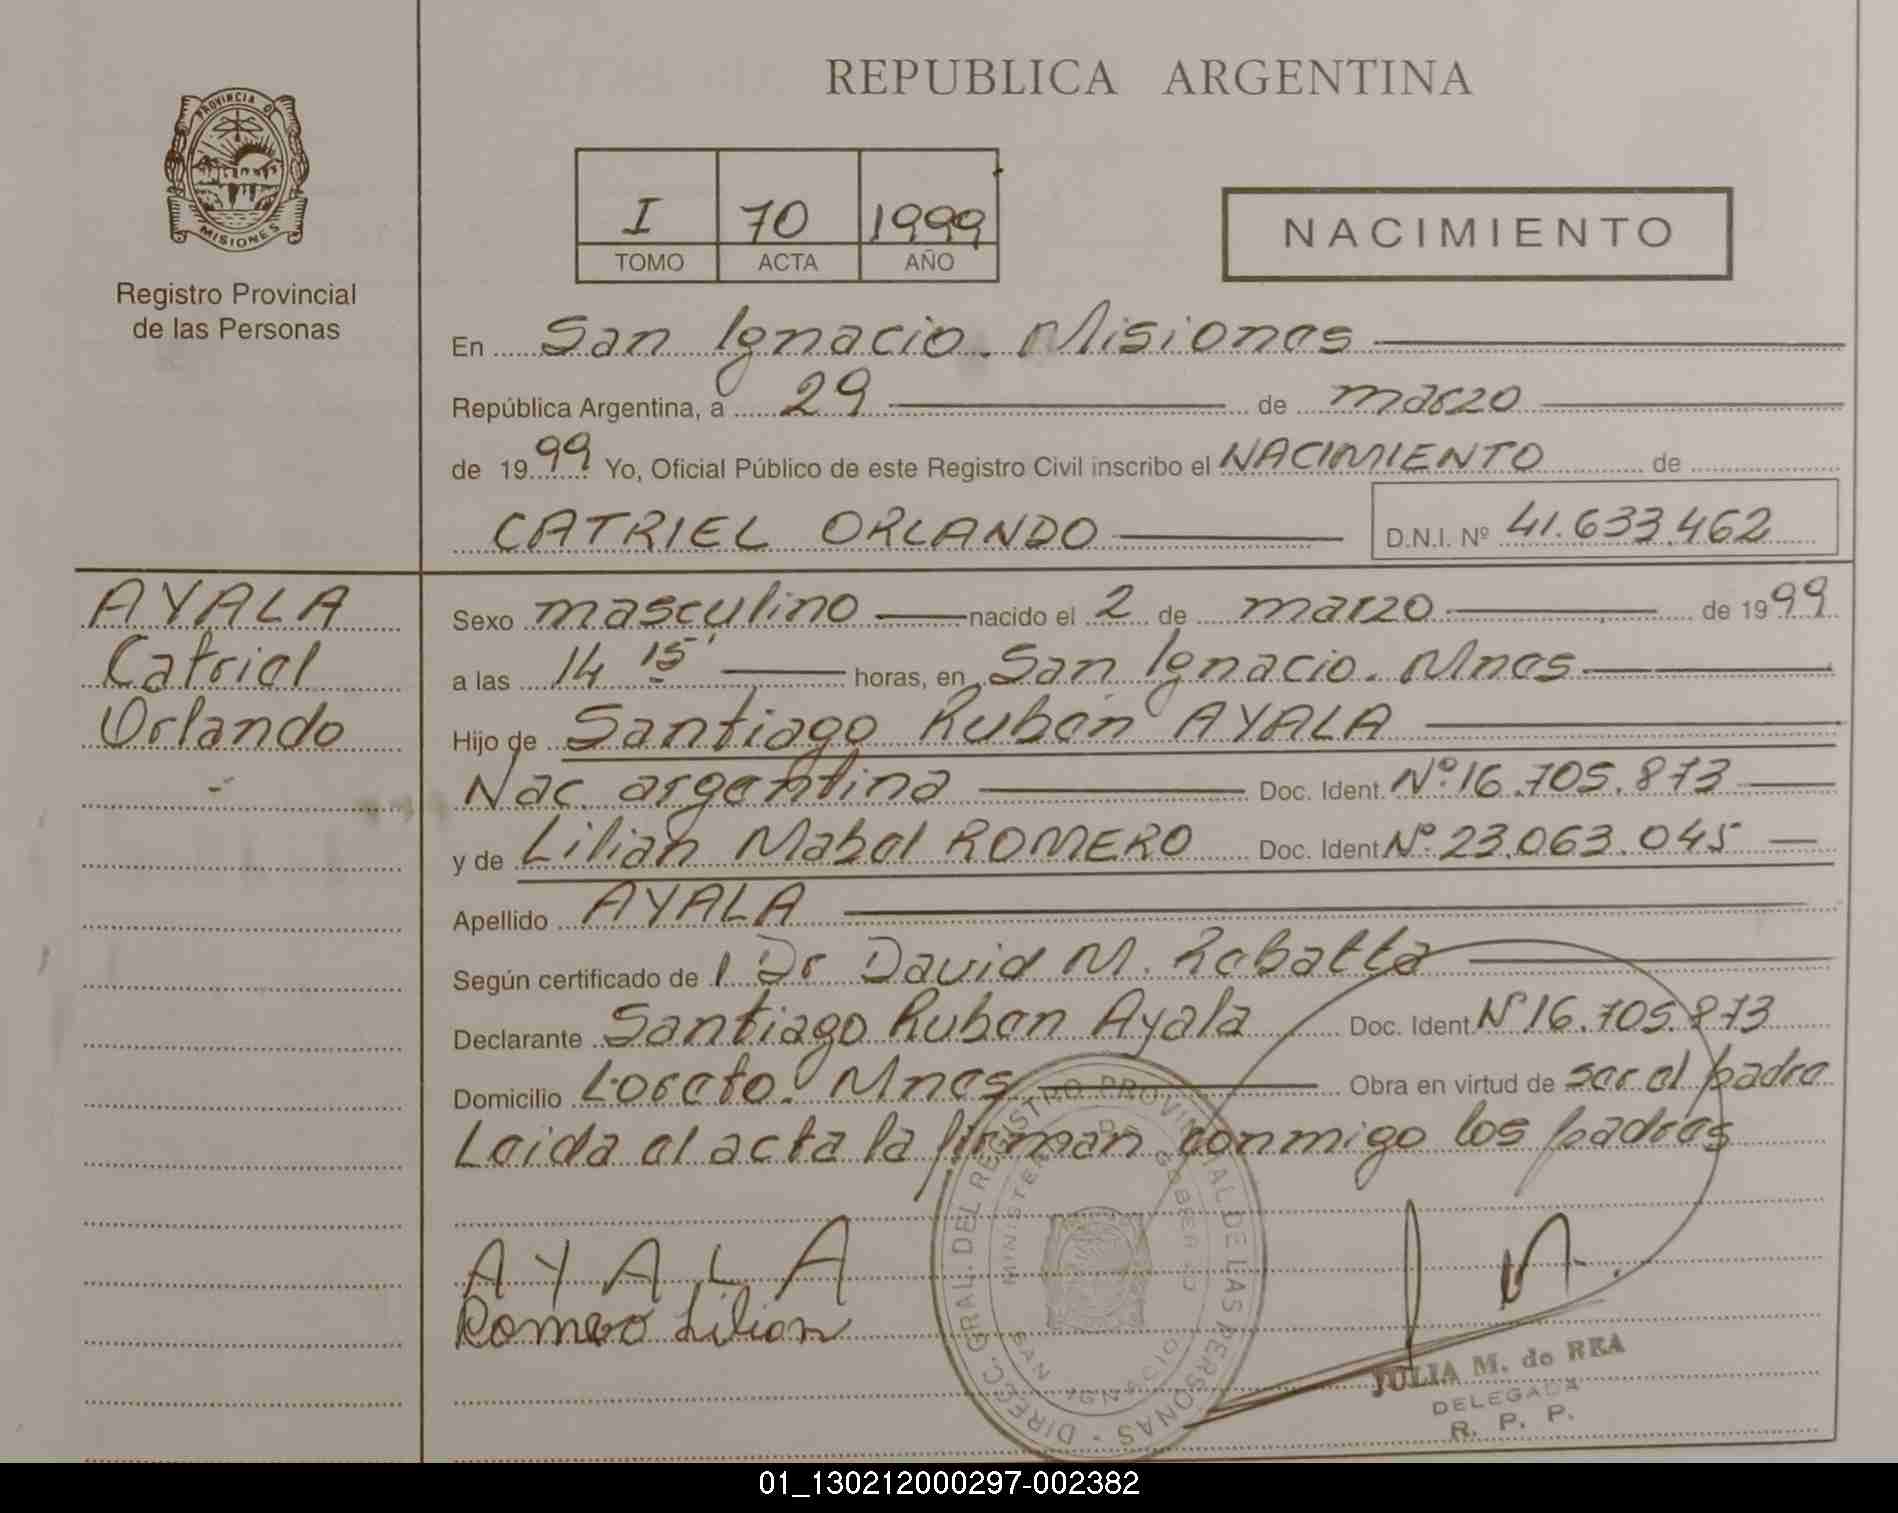 REPUBLICA ARGENTINA
PROVINCIA DE
MISIONES
Registro Provincial
de las Personas
I 70 1999
TOMO ACTA AÑO
NACIMIENTO
En San Ignacio. Misiones
República Argentina, a 29 de marzo
de 1999 Yo, Oficial Público de este Registro Civil inscribo el NACIMIENTO de
CATRIEL ORLANDO D.N.I. Nº 41.633.462
AYALA
Catriel
Orlando
Sexo masculino nacido el 2 de marzo de 1999
a las 14 15' horas, en San Ignacio. Mnes
Hijo de Santiago Ruben AYALA
Nac. argentina Doc. Ident. Nº 16.705.873
y de Lilian Mabel ROMERO Doc. Ident Nº 23.063.045
Apellido AYALA
Según certificado de l Dr David M. Rebatta
Declarante Santiago Ruben Ayala Doc. Ident Nº 16.705.873
Domicilio Loreto. Mnes Obra en virtud de ser el padre
Leida el acta la firman conmigo los padres
AYALA
Romero Lilian
DIRECC. GRAL. DEL REGISTRO PROVINCIAL DE LAS PERSONAS
MINISTERIO DE GOBIERNO
SAN IGNACIO
JULIA M. de REA
DELEGADA
R. P. P.
01_130212000297-002382